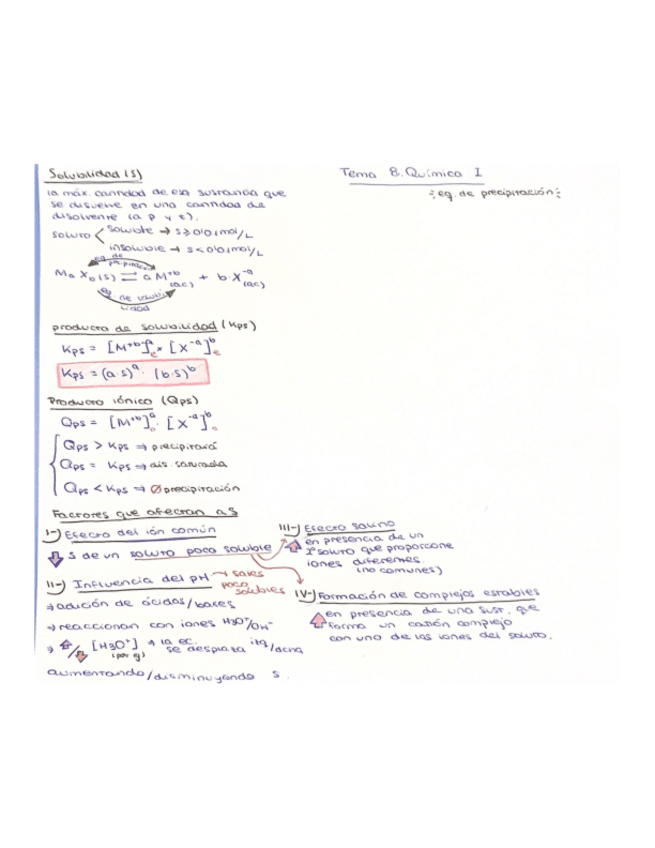 Tema 8. Química I
eq. de precipitación
Solubilidad (s)
la máx. cantidad de esa sustancia que
se disuelve en una cantidad de
disolvente (a p y t).
soluto
soluble → s ≥ 0'01 mol/L
insoluble → s < 0'01 mol/L
eq. de precipitación
Ma Xb (s) ⇌ a M+b (ac) + b·X-a (ac)
eq. de solubilidad
producto de solubilidad (Kps)
Kps = [M+b]a e × [X-a]b e
Kps = (a·s)a · (b·s)b
Producto iónico (Qps)
Qps = [M+b]a o · [X-a]b o
Qps > Kps ⇒ precipitará
Qps = Kps ⇒ dis. saturada
Qps < Kps ⇒ Ø precipitación
Factores que afectan a S
I-) Efecto del ión común
⇩ S de un soluto poco soluble
II-) Influencia del pH → sales poco solubles
⇒ adición de ácidos/bases
⇒ reaccionan con iones H3O+/OH-
⇒ ⇧/⇩ [H3O+] (por ej) ⇒ la ec. se desplaza itq/dcha
aumentando/disminuyendo s.
III-) Efecto salino
⇧ en presencia de un
soluto que proporcione
iones diferentes.
(no comunes)
IV-) Formación de complejos estables
⇧ en presencia de una sust. que
forma un catión complejo
con uno de los iones del soluto.